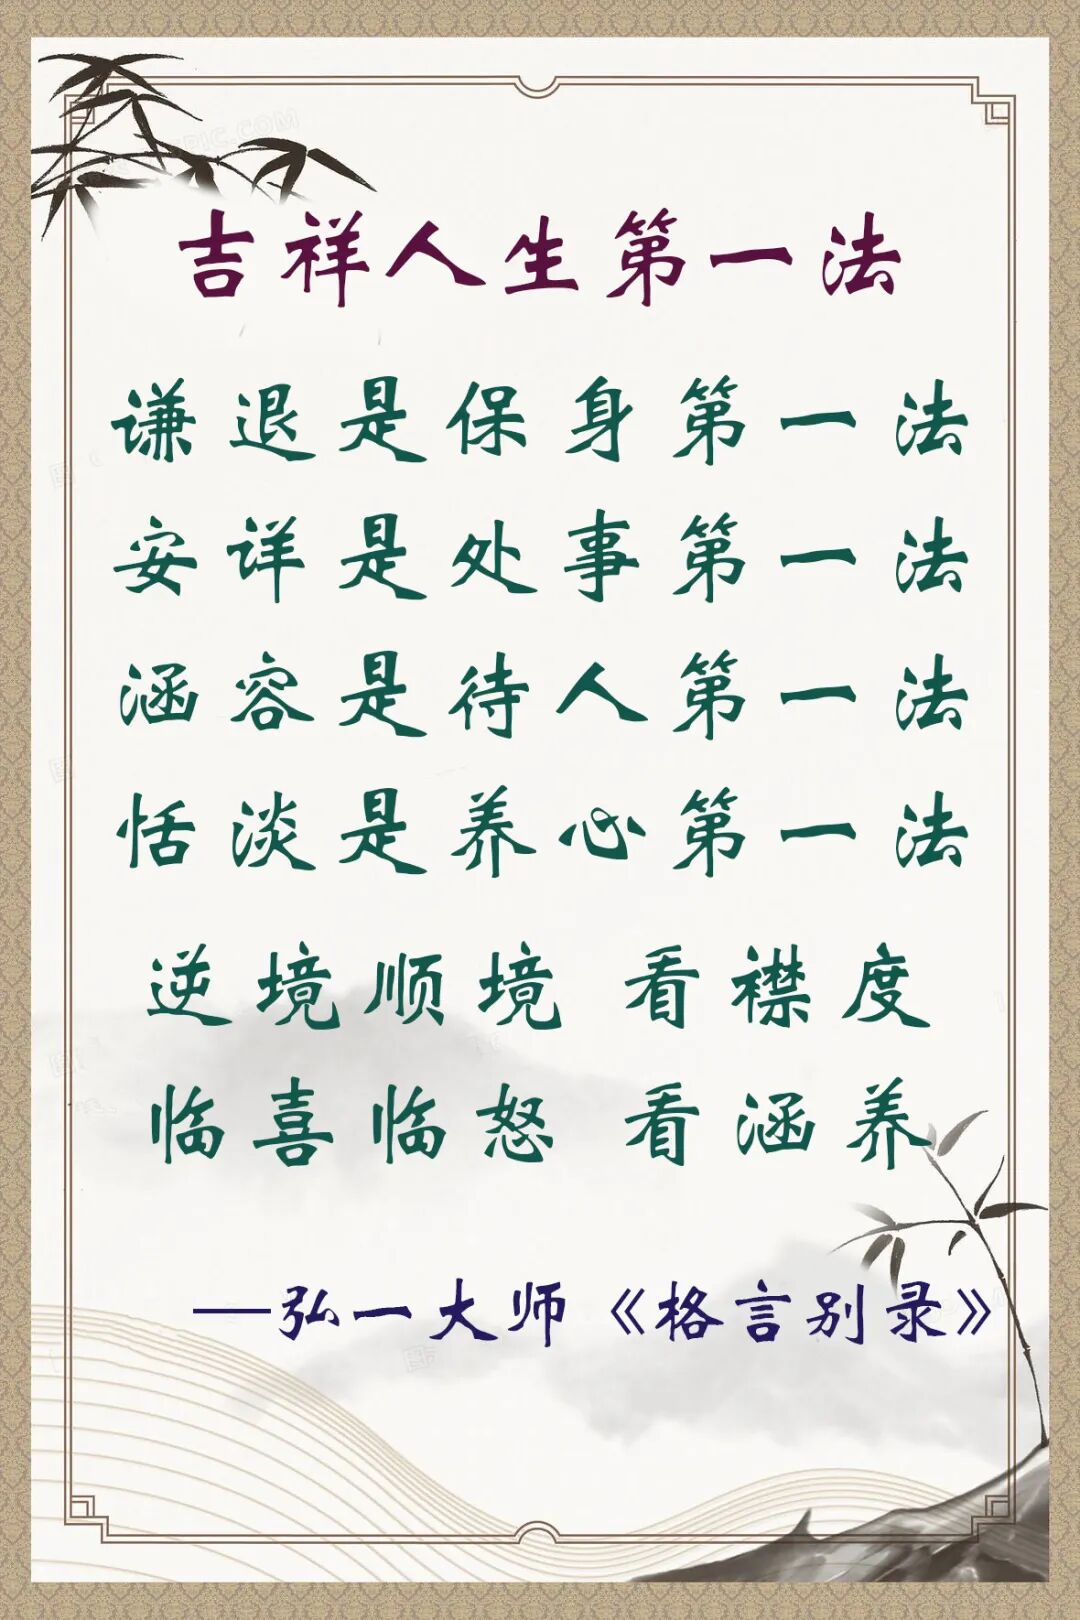 吉祥人生第一法
谦退是保身第一法
安详是处事第一法
涵容是待人第一法
恬淡是养心第一法
逆境顺境 看襟度
临喜临怒 看涵养
—弘一大师《格言别录》